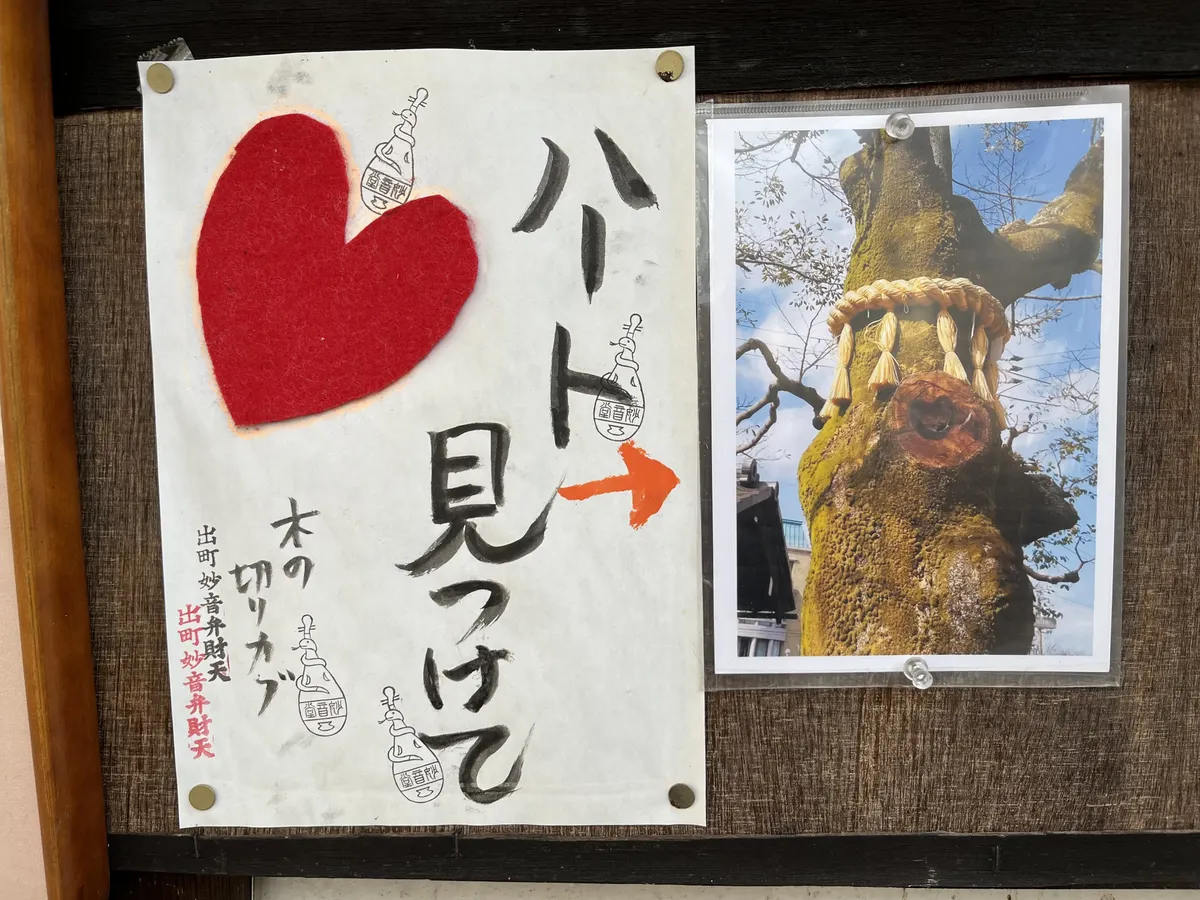 ハート
見つけて
木の
切りカブ
出町妙音弁財天
出町妙音弁財天
妙音堂
妙音堂
妙音堂
妙音堂